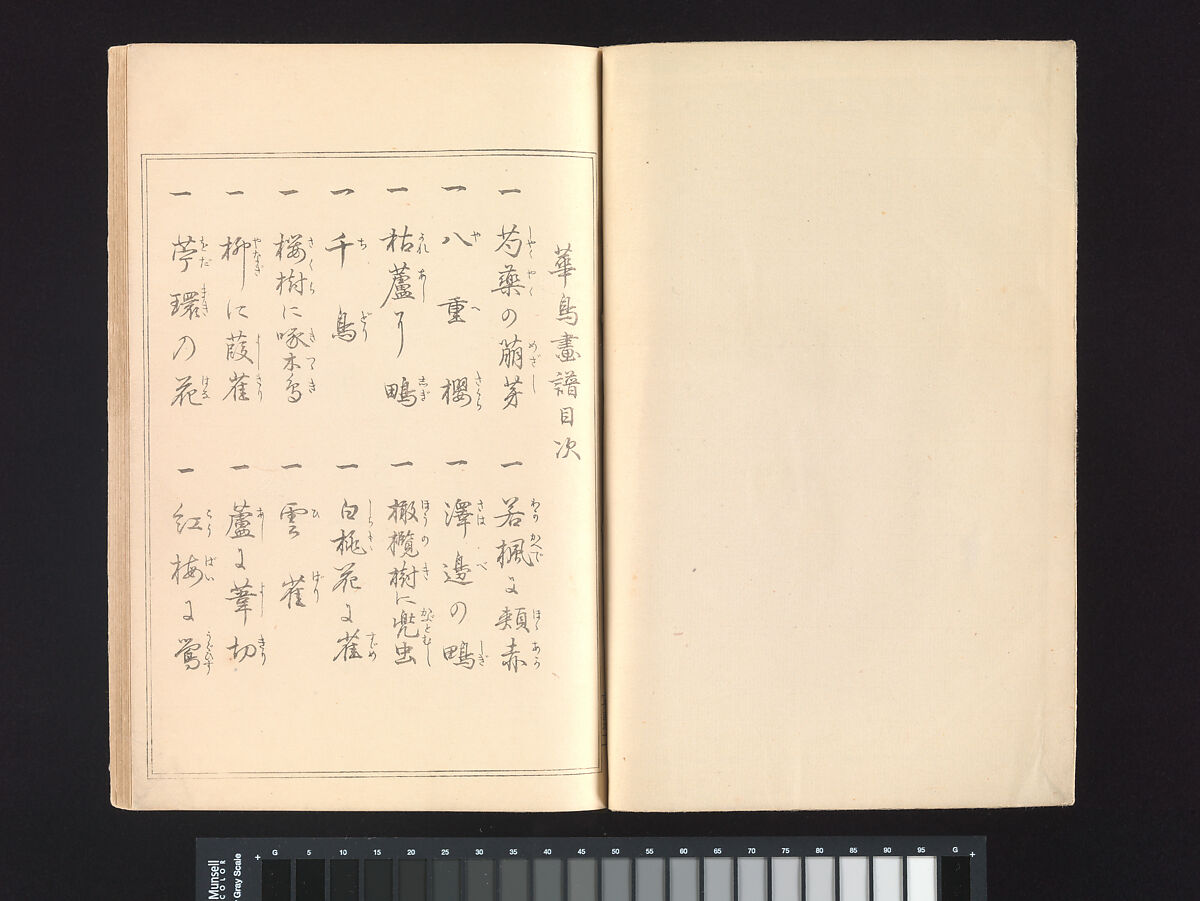 華鳥畫譜目次
一 芍藥の萠芽
一 若楓に頬赤
一 八重櫻
一 澤邊の鴫
一 枯蘆に鴫
一 橄欖樹に兜虫
一 千鳥
一 白桃花に雀
一 桜樹に啄木鳥
一 雲雀
一 柳に葭雀
一 蘆に葦切
一 苧環の花
一 紅梅に鶯
Munsell
COLOR
Gray Scale
G 5 10 15 20 25 30 35 40 45 50 55 60 65 70 75 80 85 90 95 G